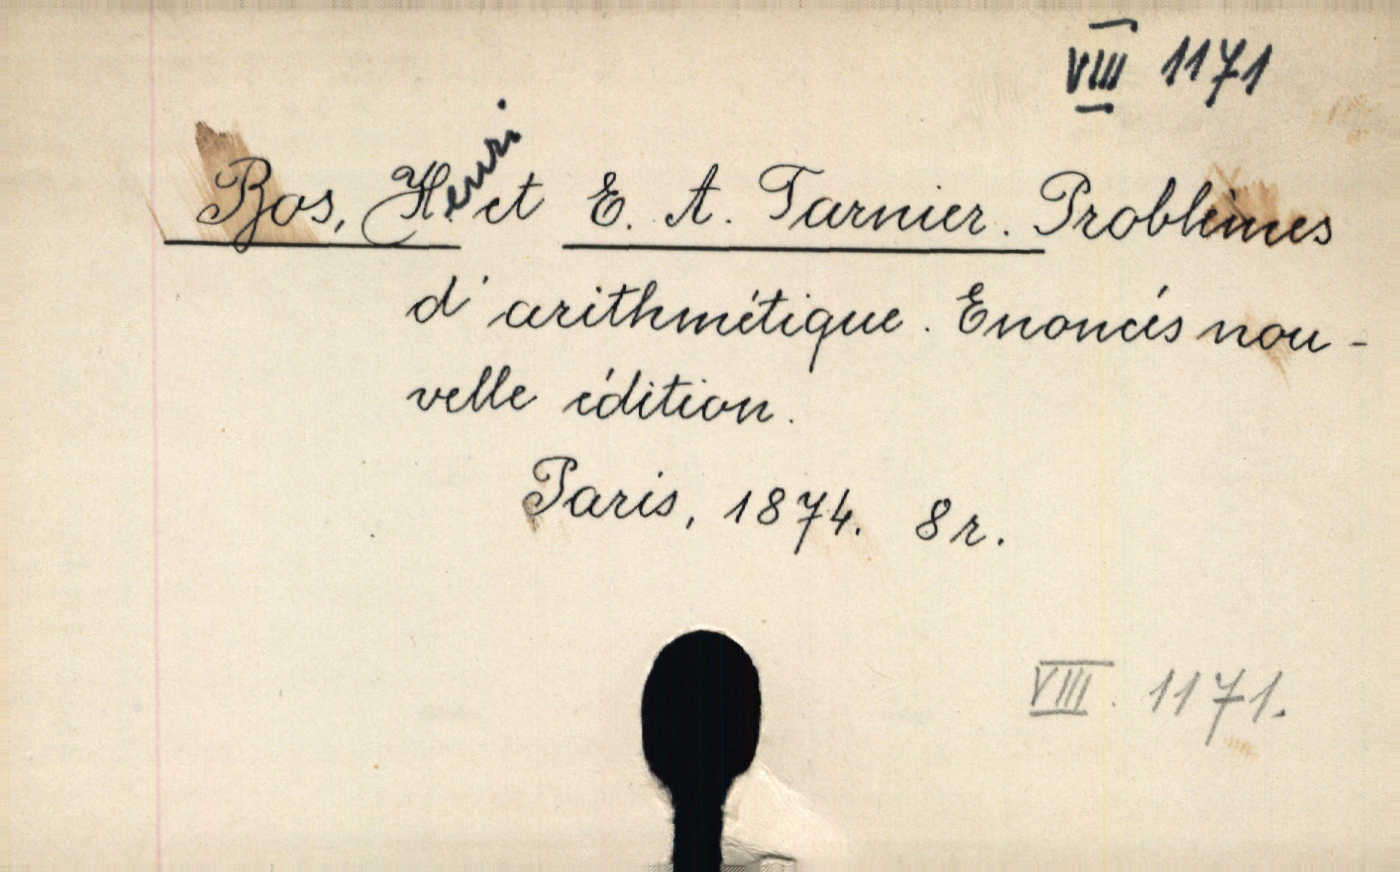 VIII 1171
Bos, Henri et E. A. Tarnier. Problèmes
d'arithmétique. Enoncés nou-
velle édition.
Paris, 1874. 8r.
VIII. 1171.